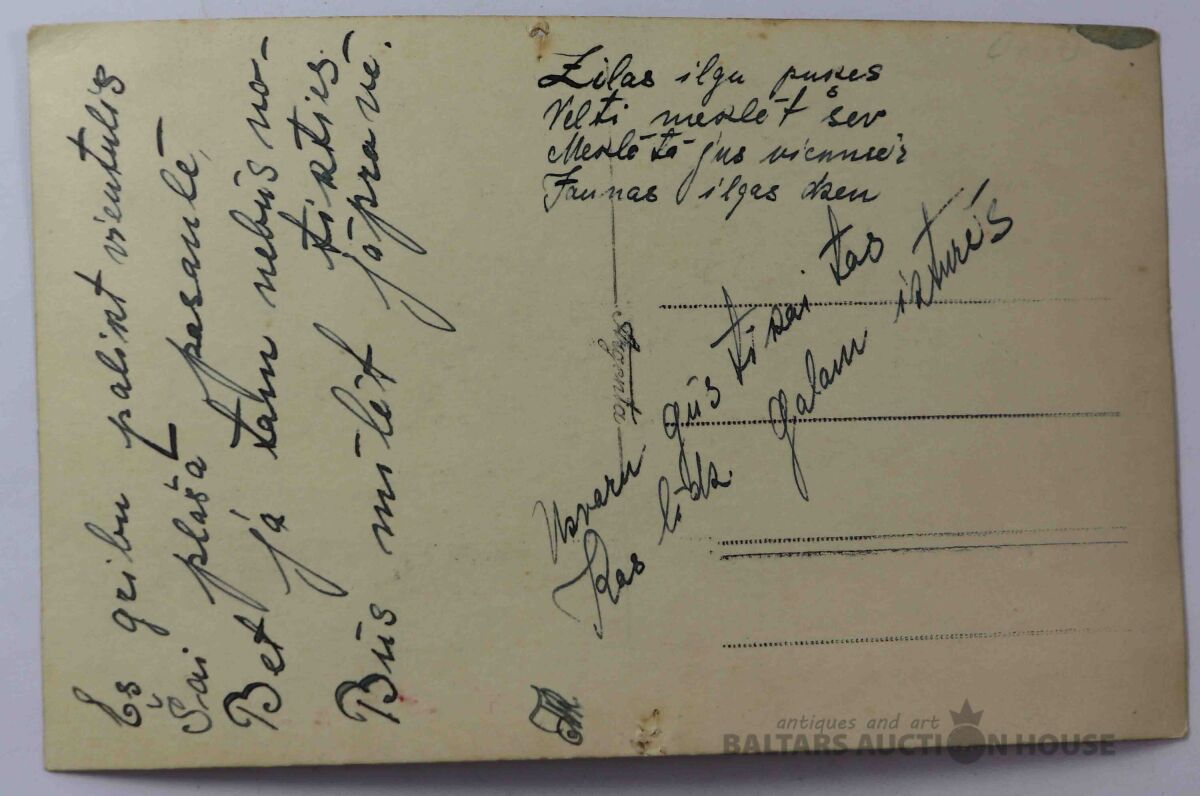 Es gribu palikt vientulis
Šai plašā pasaulē,
Bet ja tam nebūs no-
tikties
Būs mīlēt jāprawē.
Zilas ilgu pukes
Velti meklēt šev
Meklētājus vienmēr
Jaunas ilgas dzen
Uzvaru gūs tikai tas
Kas līdz galam izturēs
Argenta
antiques and art
BALTARS AUCTION HOUSE